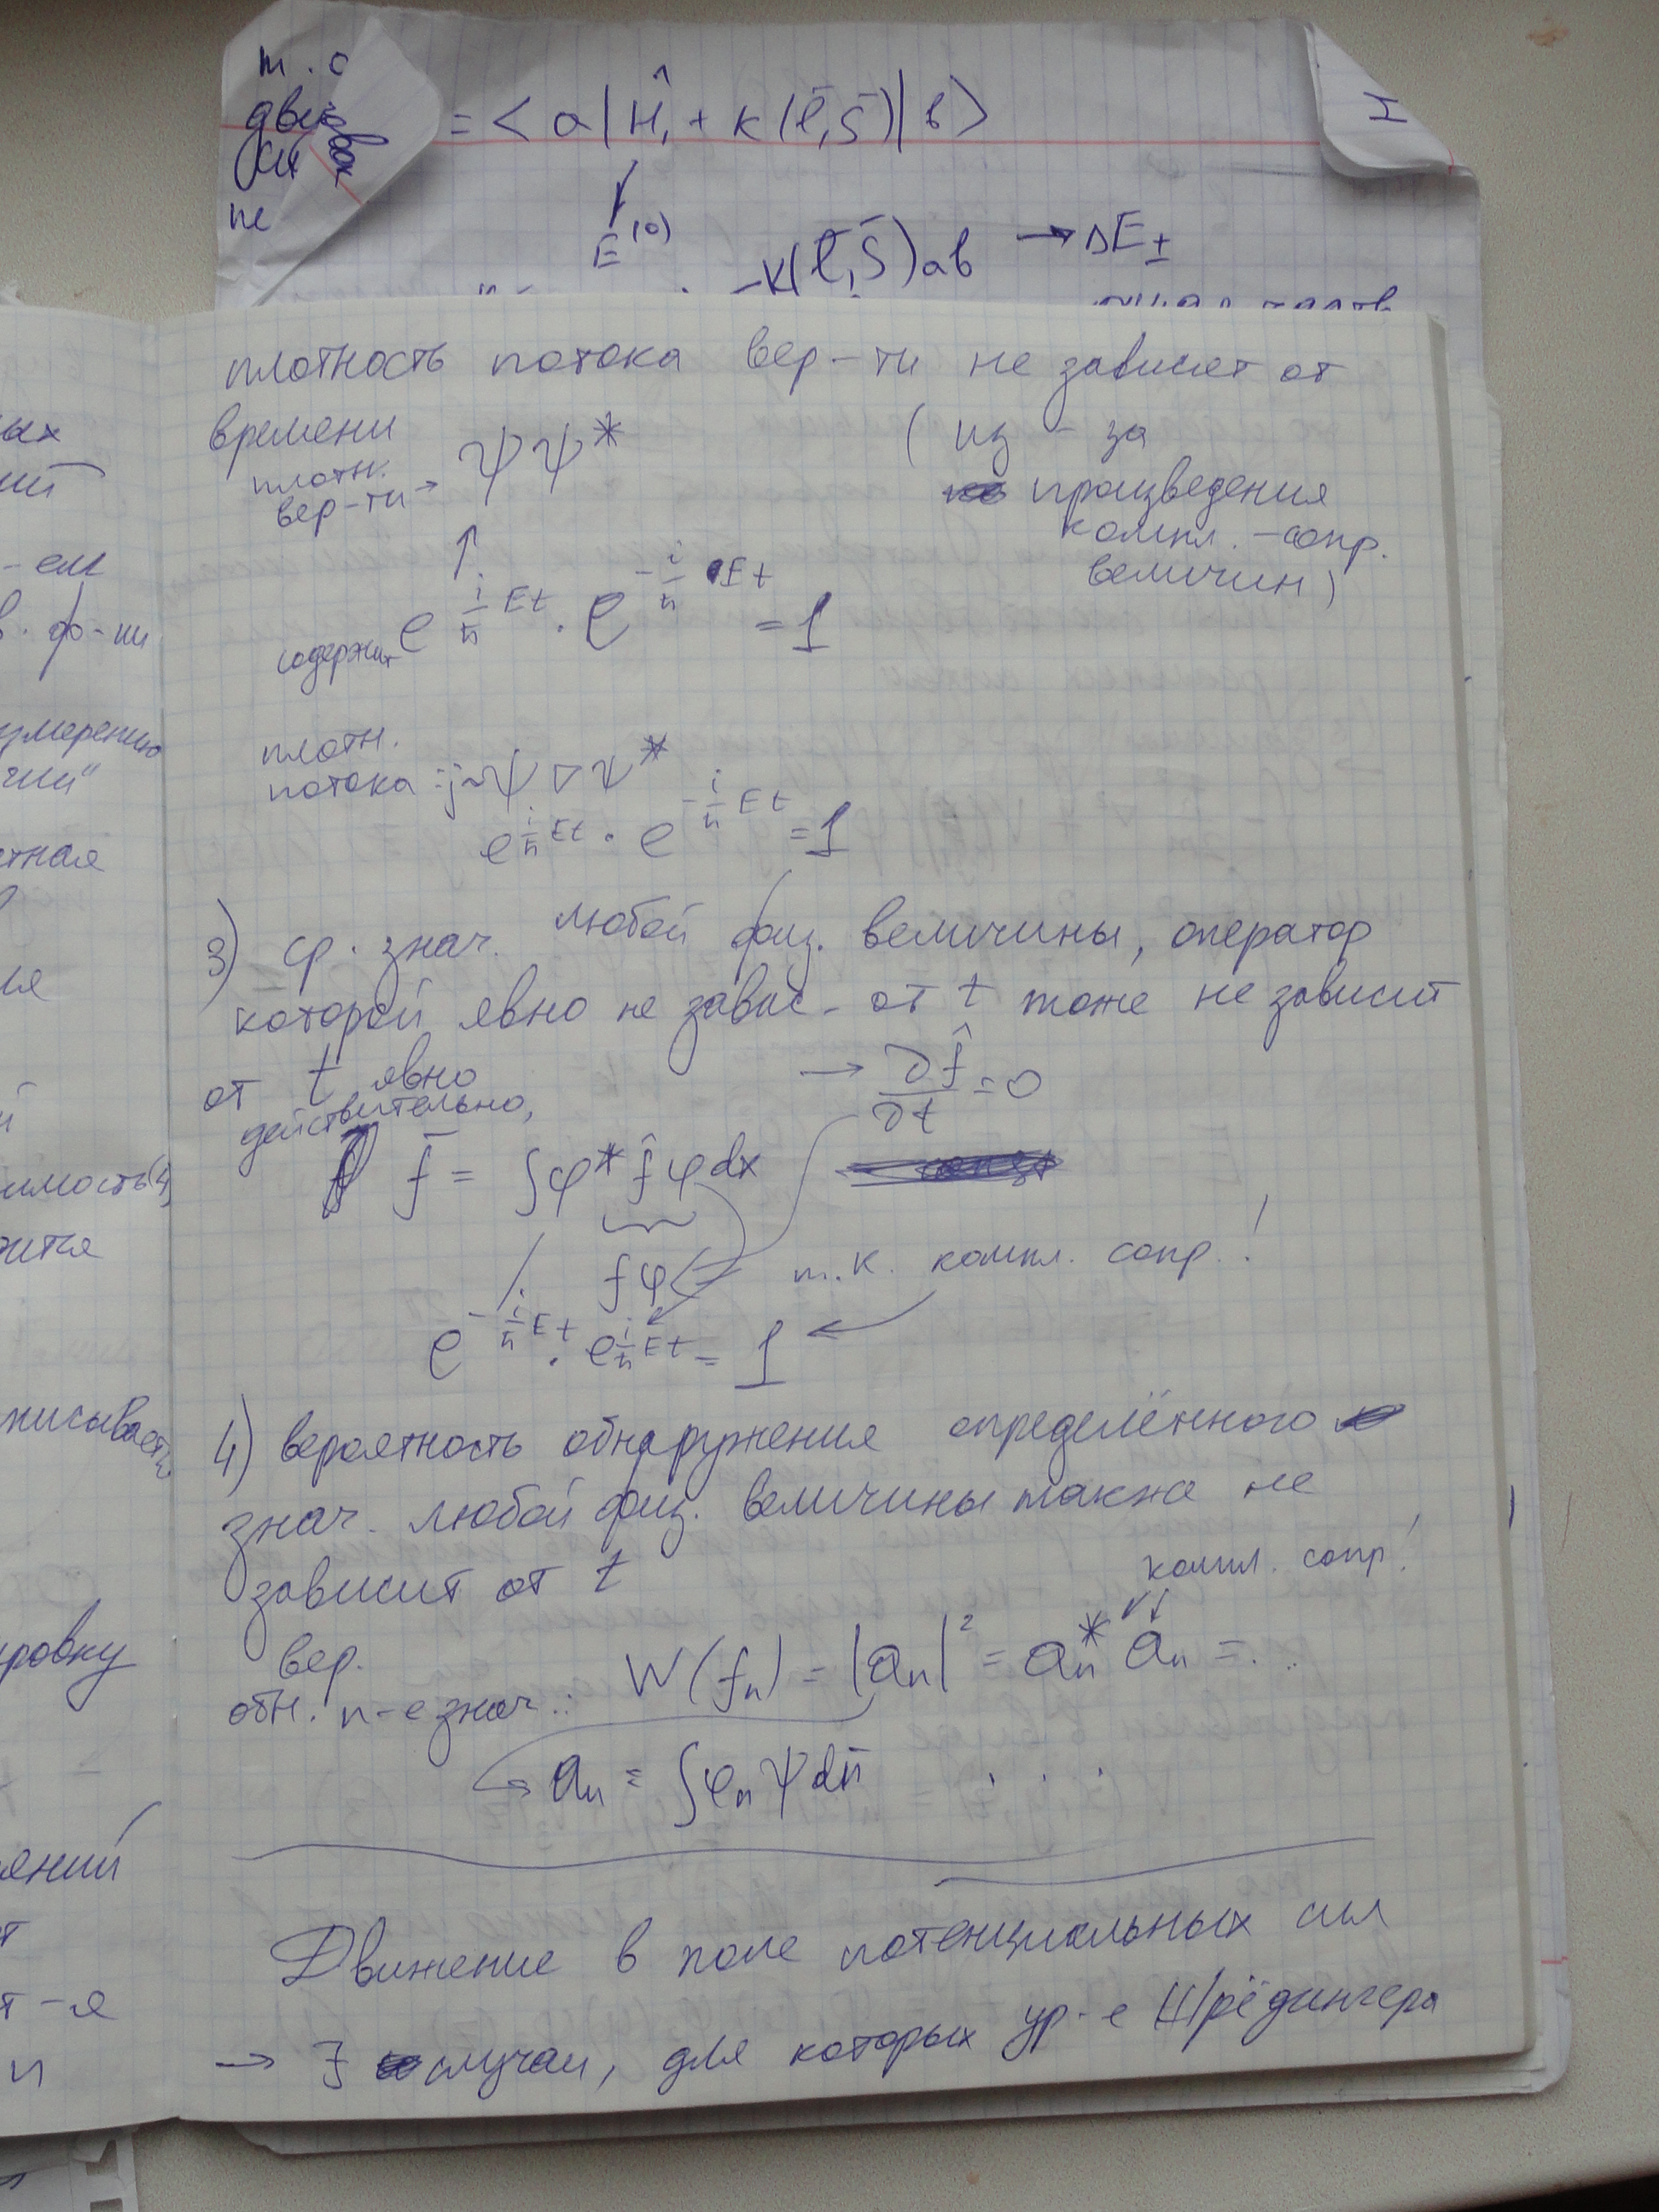 т. о
= < a | Ĥ, + к (ℓ̄, s̄) | b >
I
не
E⁽⁰⁾
-к(ℓ̄, s̄) ab → ΔE±
плотность потока вер-ти не зависят от
времени
(из-за
произведения
компл.-сопр.
величин)
плотн.
вер-ти → ψψ*
↑
содержит e^{i/ħ Et} · e^{-i/ħ Et} = 1
плотн.
потока : j~ψ∇ψ*
e^{i/ħ Et} · e^{-i/ħ Et} = 1
3) ср. знач. любой физ. величины, оператор
которой явно не завис. от t тоже не зависит
от t явно → ∂f̂/∂t = 0
действительно,
f̄ = ∫φ* f̂ φ dx
fφ
т.к. компл. сопр.!
e^{-i/ħ Et} · e^{i/ħ Et} = 1
4) вероятность обнаружения определённого
знач. любой физ. величины также не
зависит от t
компл. сопр!
вер.
обн. n-е знач.: W(fₙ) = |aₙ|² = aₙ* aₙ = ...
aₙ = ∫φₙ ψ dn̄ . . .
Движение в поле потенциальных сил
→ ∃ случаи, для которых ур-е Шрёдингера
ых
ий
-ем
в. ф-ии
змерению
чии"
тная
ия
имость(4)
ится
писывается
ровку
яний
т
т-я
и